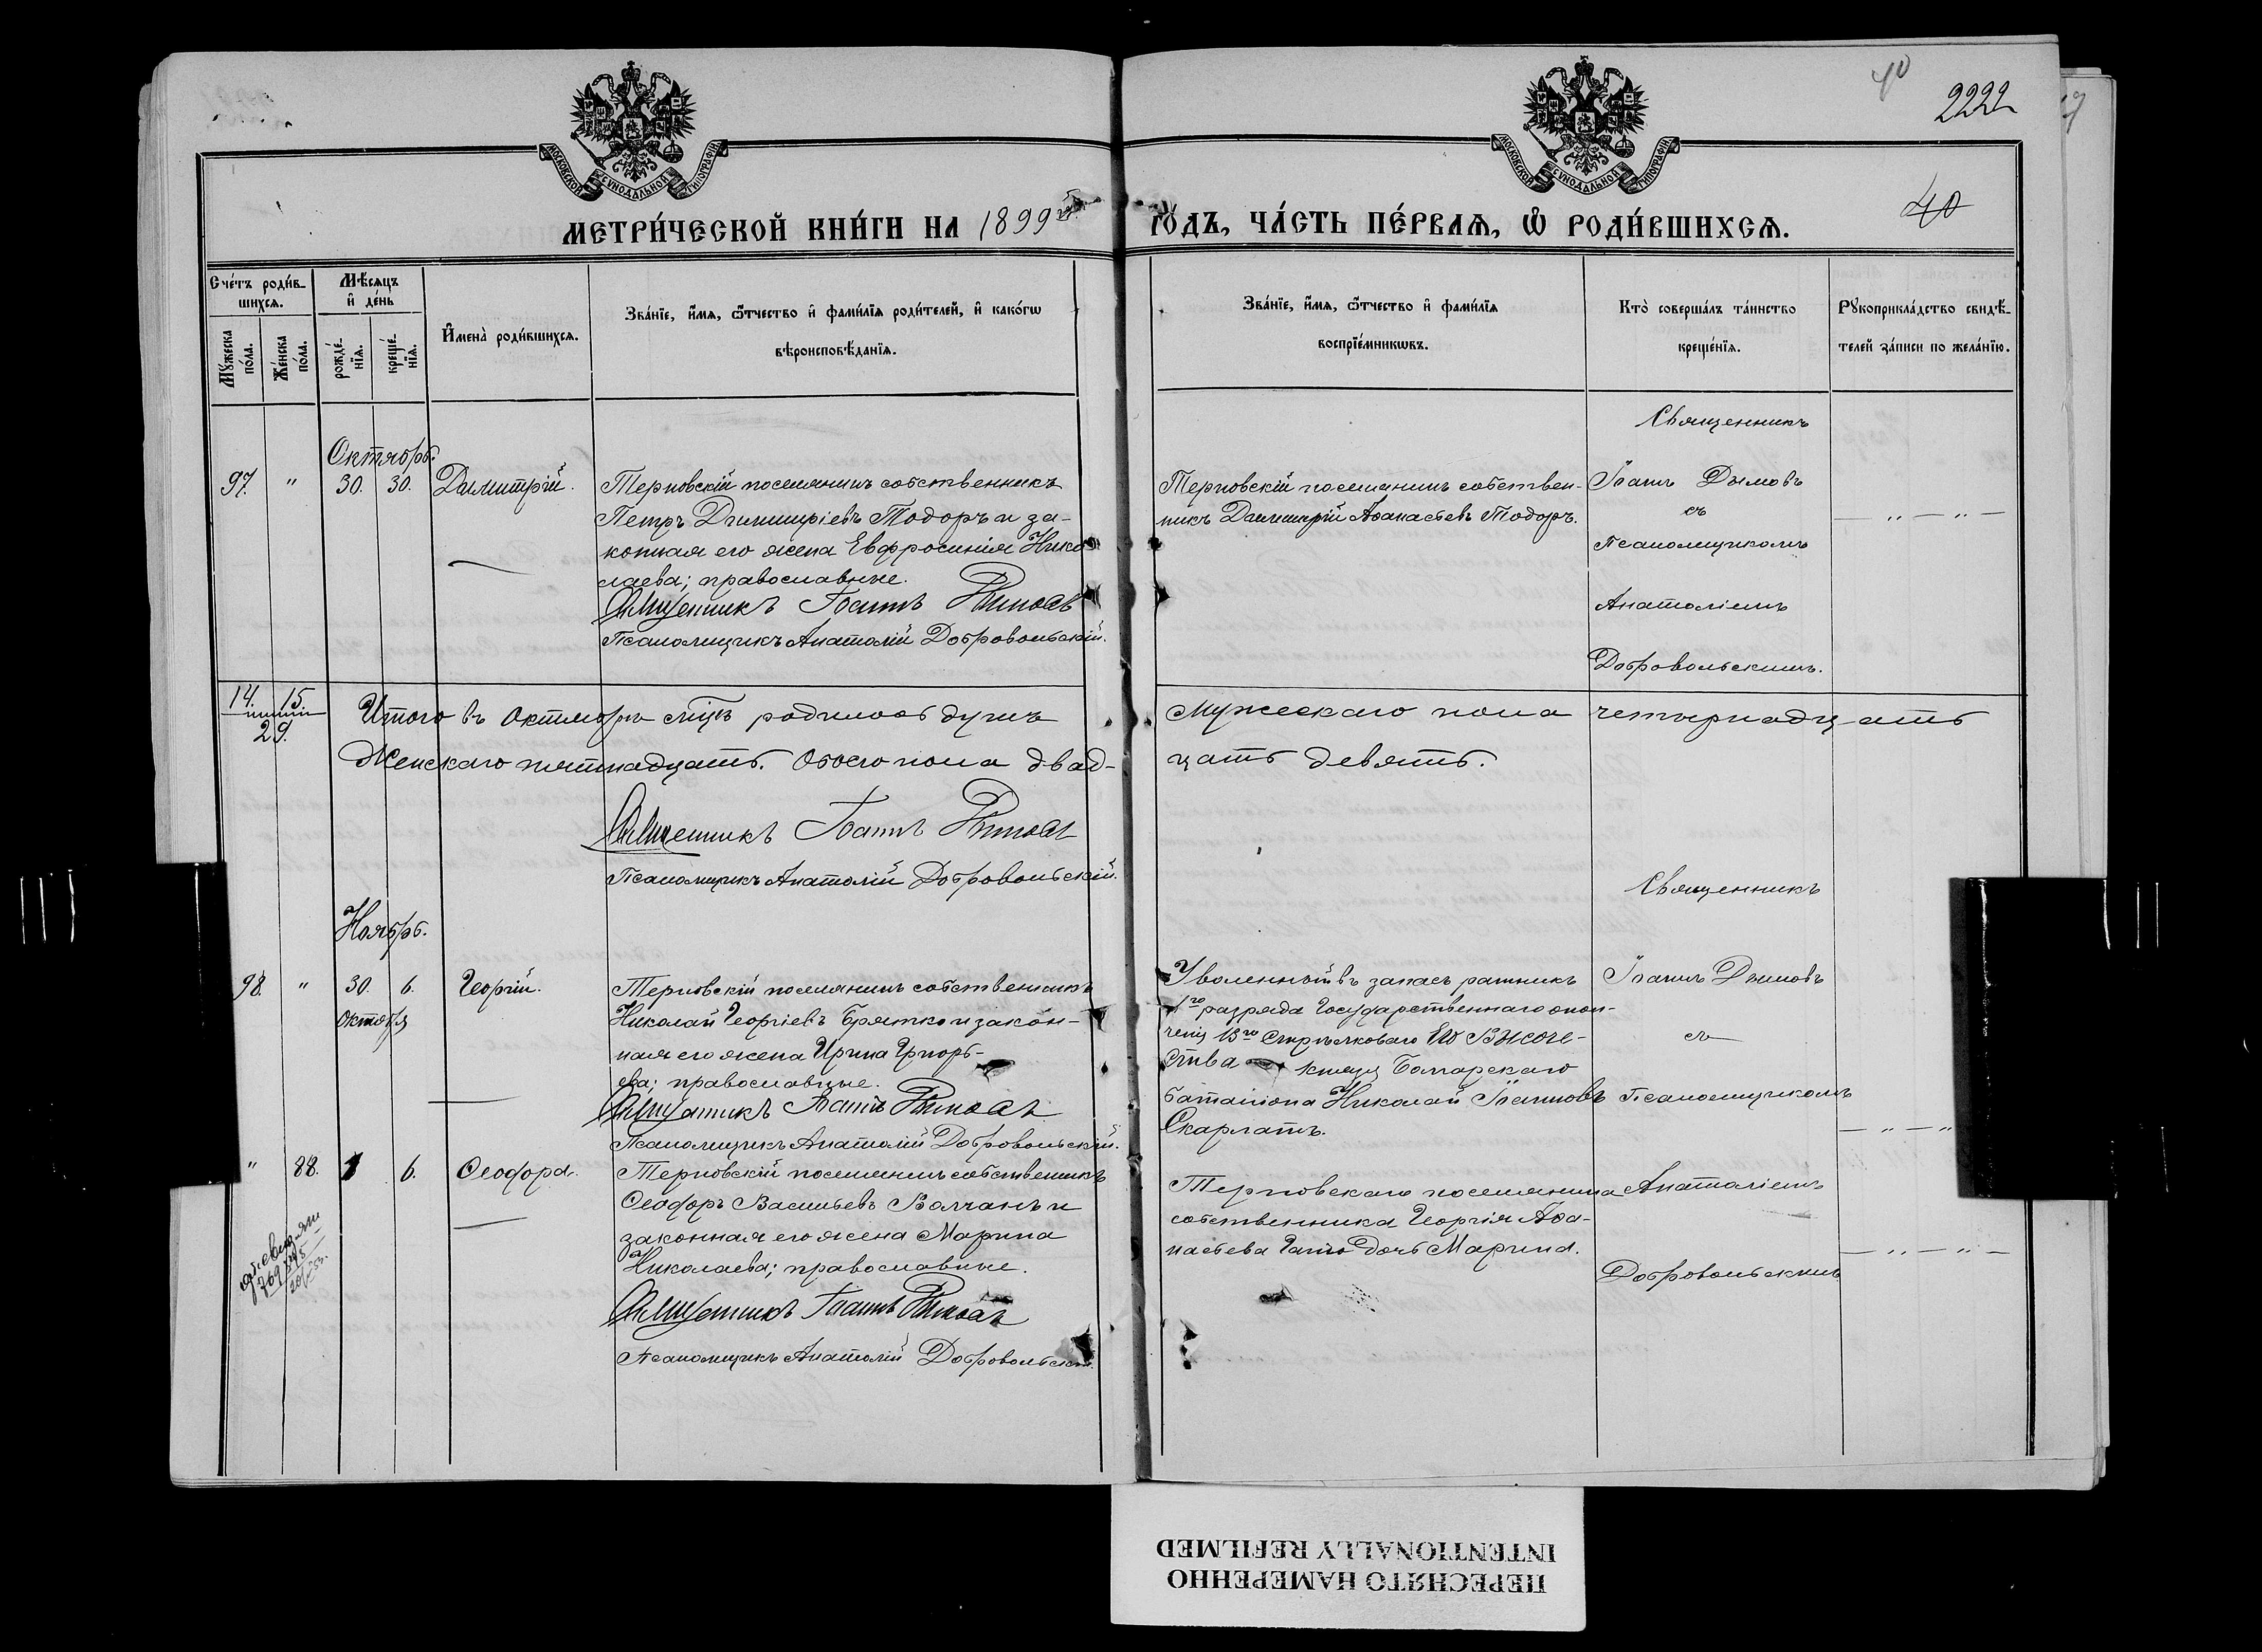 40
2222
МОСКОВСКОЙ СѴНОДАЛЬНОЙ ТИПОГРАФІИ
МОСКОВСКОЙ СѴНОДАЛЬНОЙ ТИПОГРАФІИ
МЕТРИ́ЧЕСКОЙ КНИ́ГИ НА 1899 й
ГО́ДЪ, ЧА́СТЬ ПЕ́РВАѦ, Ѽ РОДИ́ВШИХСѦ.
40
Сче́тъ роди́в-
шихсѧ.
Мꙋ́жеска по́ла.
Же́нска по́ла.
Мѣ́сѧцъ
и҆ де́нь
рожде́-
нїѧ.
креще́-
нїѧ.
И҆мена̀ роди́вшихсѧ.
Зва́нїе, и҆́мѧ, ѻ҆́тчество и҆ фамѝлїѧ роди́телей, и҆ како́гѡ
вѣроисповѣ́данїѧ.
Зва́нїе, и҆́мѧ, ѻ҆́тчество и҆ фами́лїѧ
воспрїе́мникѡвъ.
Кто̀ соверша́лъ та́инство
креще́нїѧ.
Рꙋкоприкла́дство свидѣ́-
телей за́писи по жела́нїю.
Октябрь.
97. " 30. 30. Димитрій.
Терновскій поселянинъ собственникъ
Петръ Димитріевъ Тодоръ и за-
конная его жена Евфросинія Нико-
лаева; православные.
Священникъ Іоаннъ Дымовъ
Псаломщикъ Анатолій Добровольскій.
Терновскій поселянинъ собствен-
никъ Димитрій Аѳанасьевъ Тодоръ.
Священникъ
Іоаннъ Дымовъ
съ
Псаломщикомъ
Анатоліемъ
Добровольскимъ.
— " — " —
14. 15.
29.
Итого въ Октябрѣ мѣцѣ родилось душъ Мужескаго пола четырнадцать
Женскаго пятнадцать. Обоего пола двад- цать девять.
Священникъ Іоаннъ Дымовъ
Псаломщикъ Анатолій Добровольскій.
Ноябрь.
98. " 30. 6. Георгій.
Октября
Терновскій поселянинъ собственникъ
Николай Георгіевъ Братко и закон-
ная его жена Ирина Григорь-
ева; православные.
Священникъ Іоаннъ Дымовъ
Псаломщикъ Анатолій Добровольскій.
Уволенный въ запасъ ратникъ
1го разряда Государственнаго опол-
ченія 13го Стрѣлковаго Его Высоче-
ства Князя Болгарскаго
баталіона Николай Іоанновъ
Скарлатъ.
Священникъ
Іоаннъ Дымовъ
съ
Псаломщикомъ
— " — "
" 88. 1 6. Ѳеодора.
Терновскій поселянинъ собственникъ
Ѳеодоръ Васильевъ Волчанъ и
законная его жена Марина
Николаева; православные.
Священникъ Іоаннъ Дымовъ
Псаломщикъ Анатолій Добровольскій.
Терновскаго поселянина
собственника Георгія Аѳа-
насьева дочь Марина.
Анатоліемъ
Добровольскимъ
— " — " —
ПЕРЕСНЯТО НАМЕРЕННО
INTENTIONALLY REFILMED